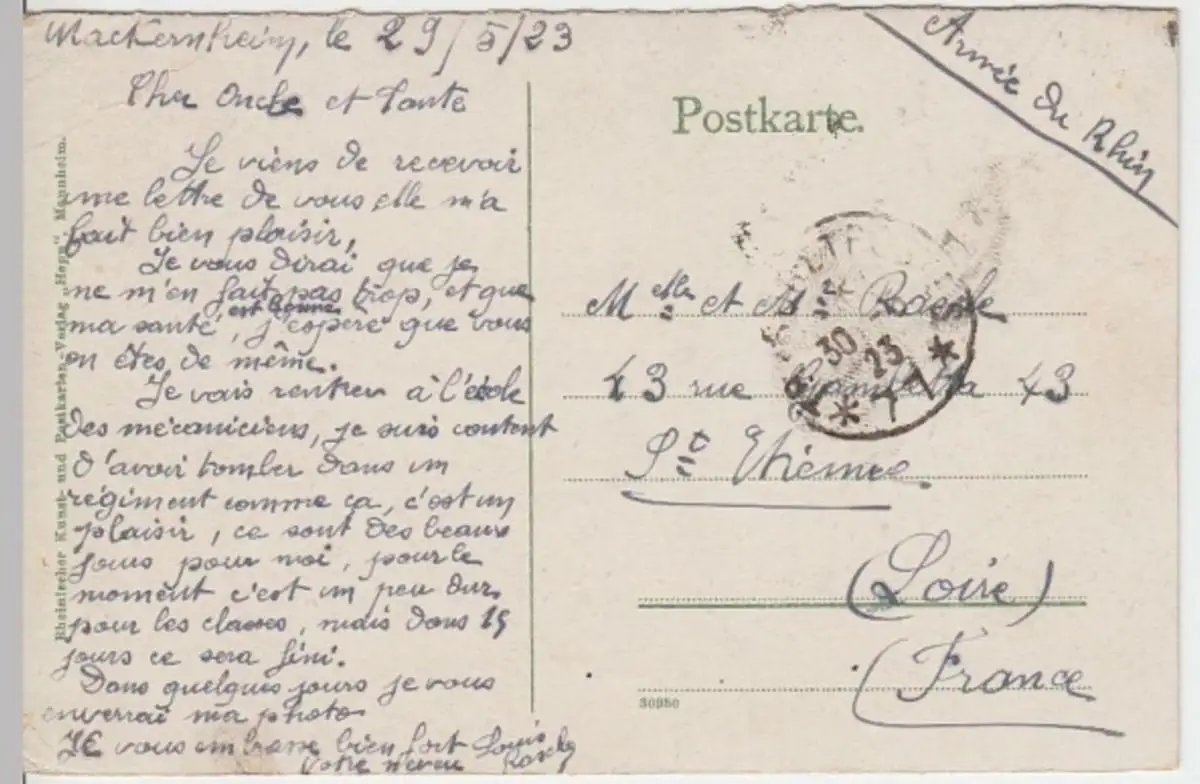 Wackernheim, le 29/5/23
Cher Oncle et Tante
Je viens de recevoir
une lettre de vous, elle m'a
fait bien plaisir,
Je vous dirai que je
ne m'en fait pas trop, et que
ma santé est bonne, j'espère que vous
en êtes de même.
Je vais rentrer à l'école
des mécaniciens, je suis content
d'avoir tomber dans un
régiment comme ça, c'est un
plaisir, ce sont des beaux
jours pour moi, pour le
moment c'est un peu dur,
pour les classes, mais dans 15
jours ce sera fini.
Dans quelques jours je vous
enverrai ma photo
Je vous embrasse bien fort Louis
Votre neveu
Rheinischer Kunst- und Postkarten-Verlag „Hepp“, Mannheim.
Postkarte.
Armée du Rhin
30 23
* 7 1 *
Melle et Mr
43 rue Gambetta 43
St Etienne
(Loire)
(France
30350